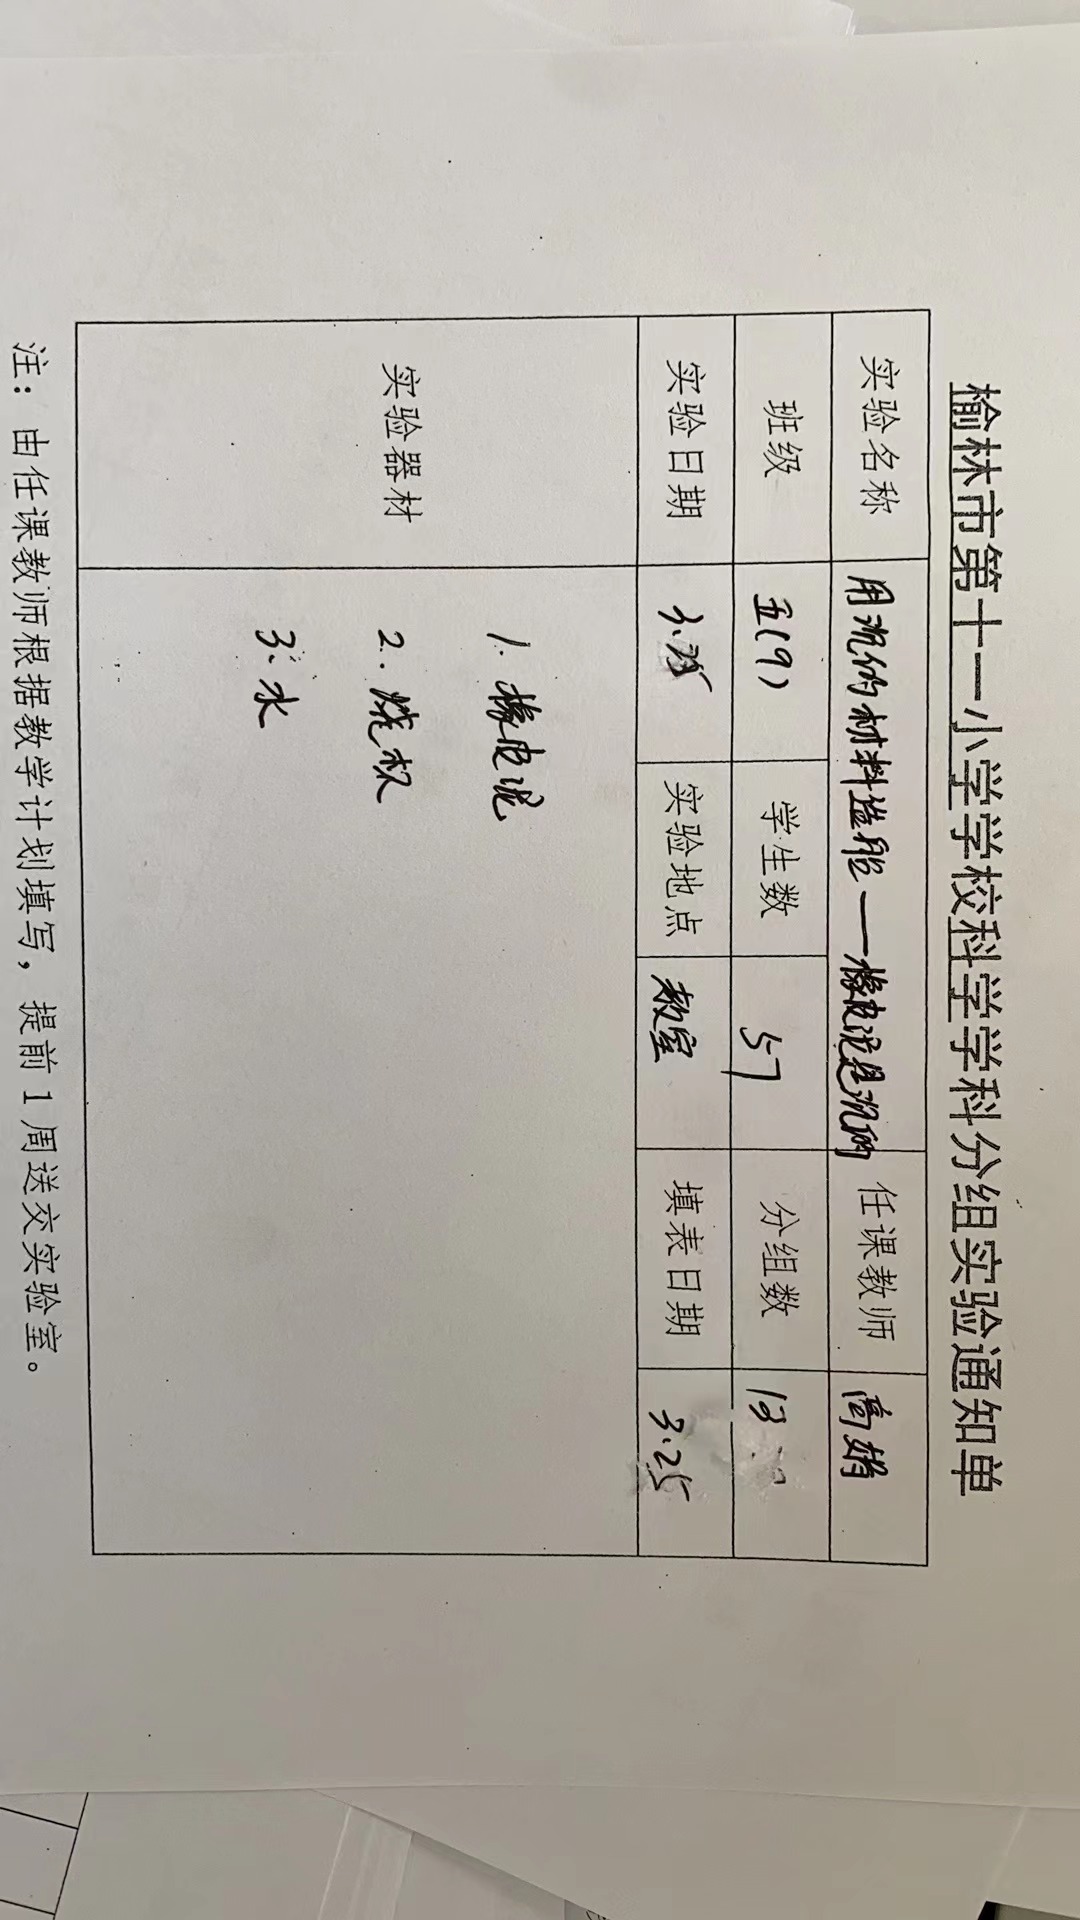 榆林市第十一小学学校科学学科分组实验通知单
实验名称 用沉的材料造船——橡皮泥是沉的 任课教师 高娟
班级 五(9) 学生数 57 分组数 13
实验日期 3.25 实验地点 教室 填表日期 3.25
实验器材
1. 橡皮泥
2. 烧杯
3. 水
注：由任课教师根据教学计划填写，提前1周送交实验室。